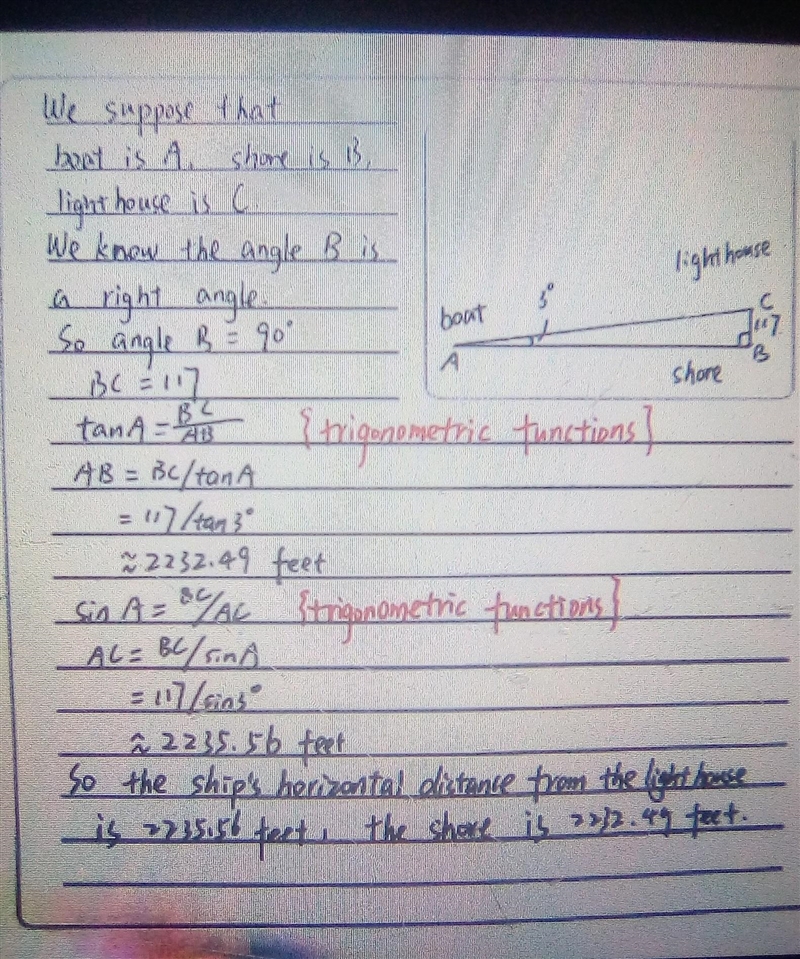 We suppose that
boat is A. shore is B.
light house is C.
We know the angle B is
a right angle.
So angle B = 90°
BC = 117
tanA = BC/AB {trigonometric functions}
AB = BC/tanA
= 117/tan3°
≈ 2232.49 feet
sin A = BC/AC {trigonometric functions}
AC = BC/sinA
= 117/sin3°
≈ 2235.56 feet
So the ship's horizontal distance from the light house
is 2235.56 feet, the shore is 2232.49 feet.
light house
boat
3°
C
117
A
B
shore